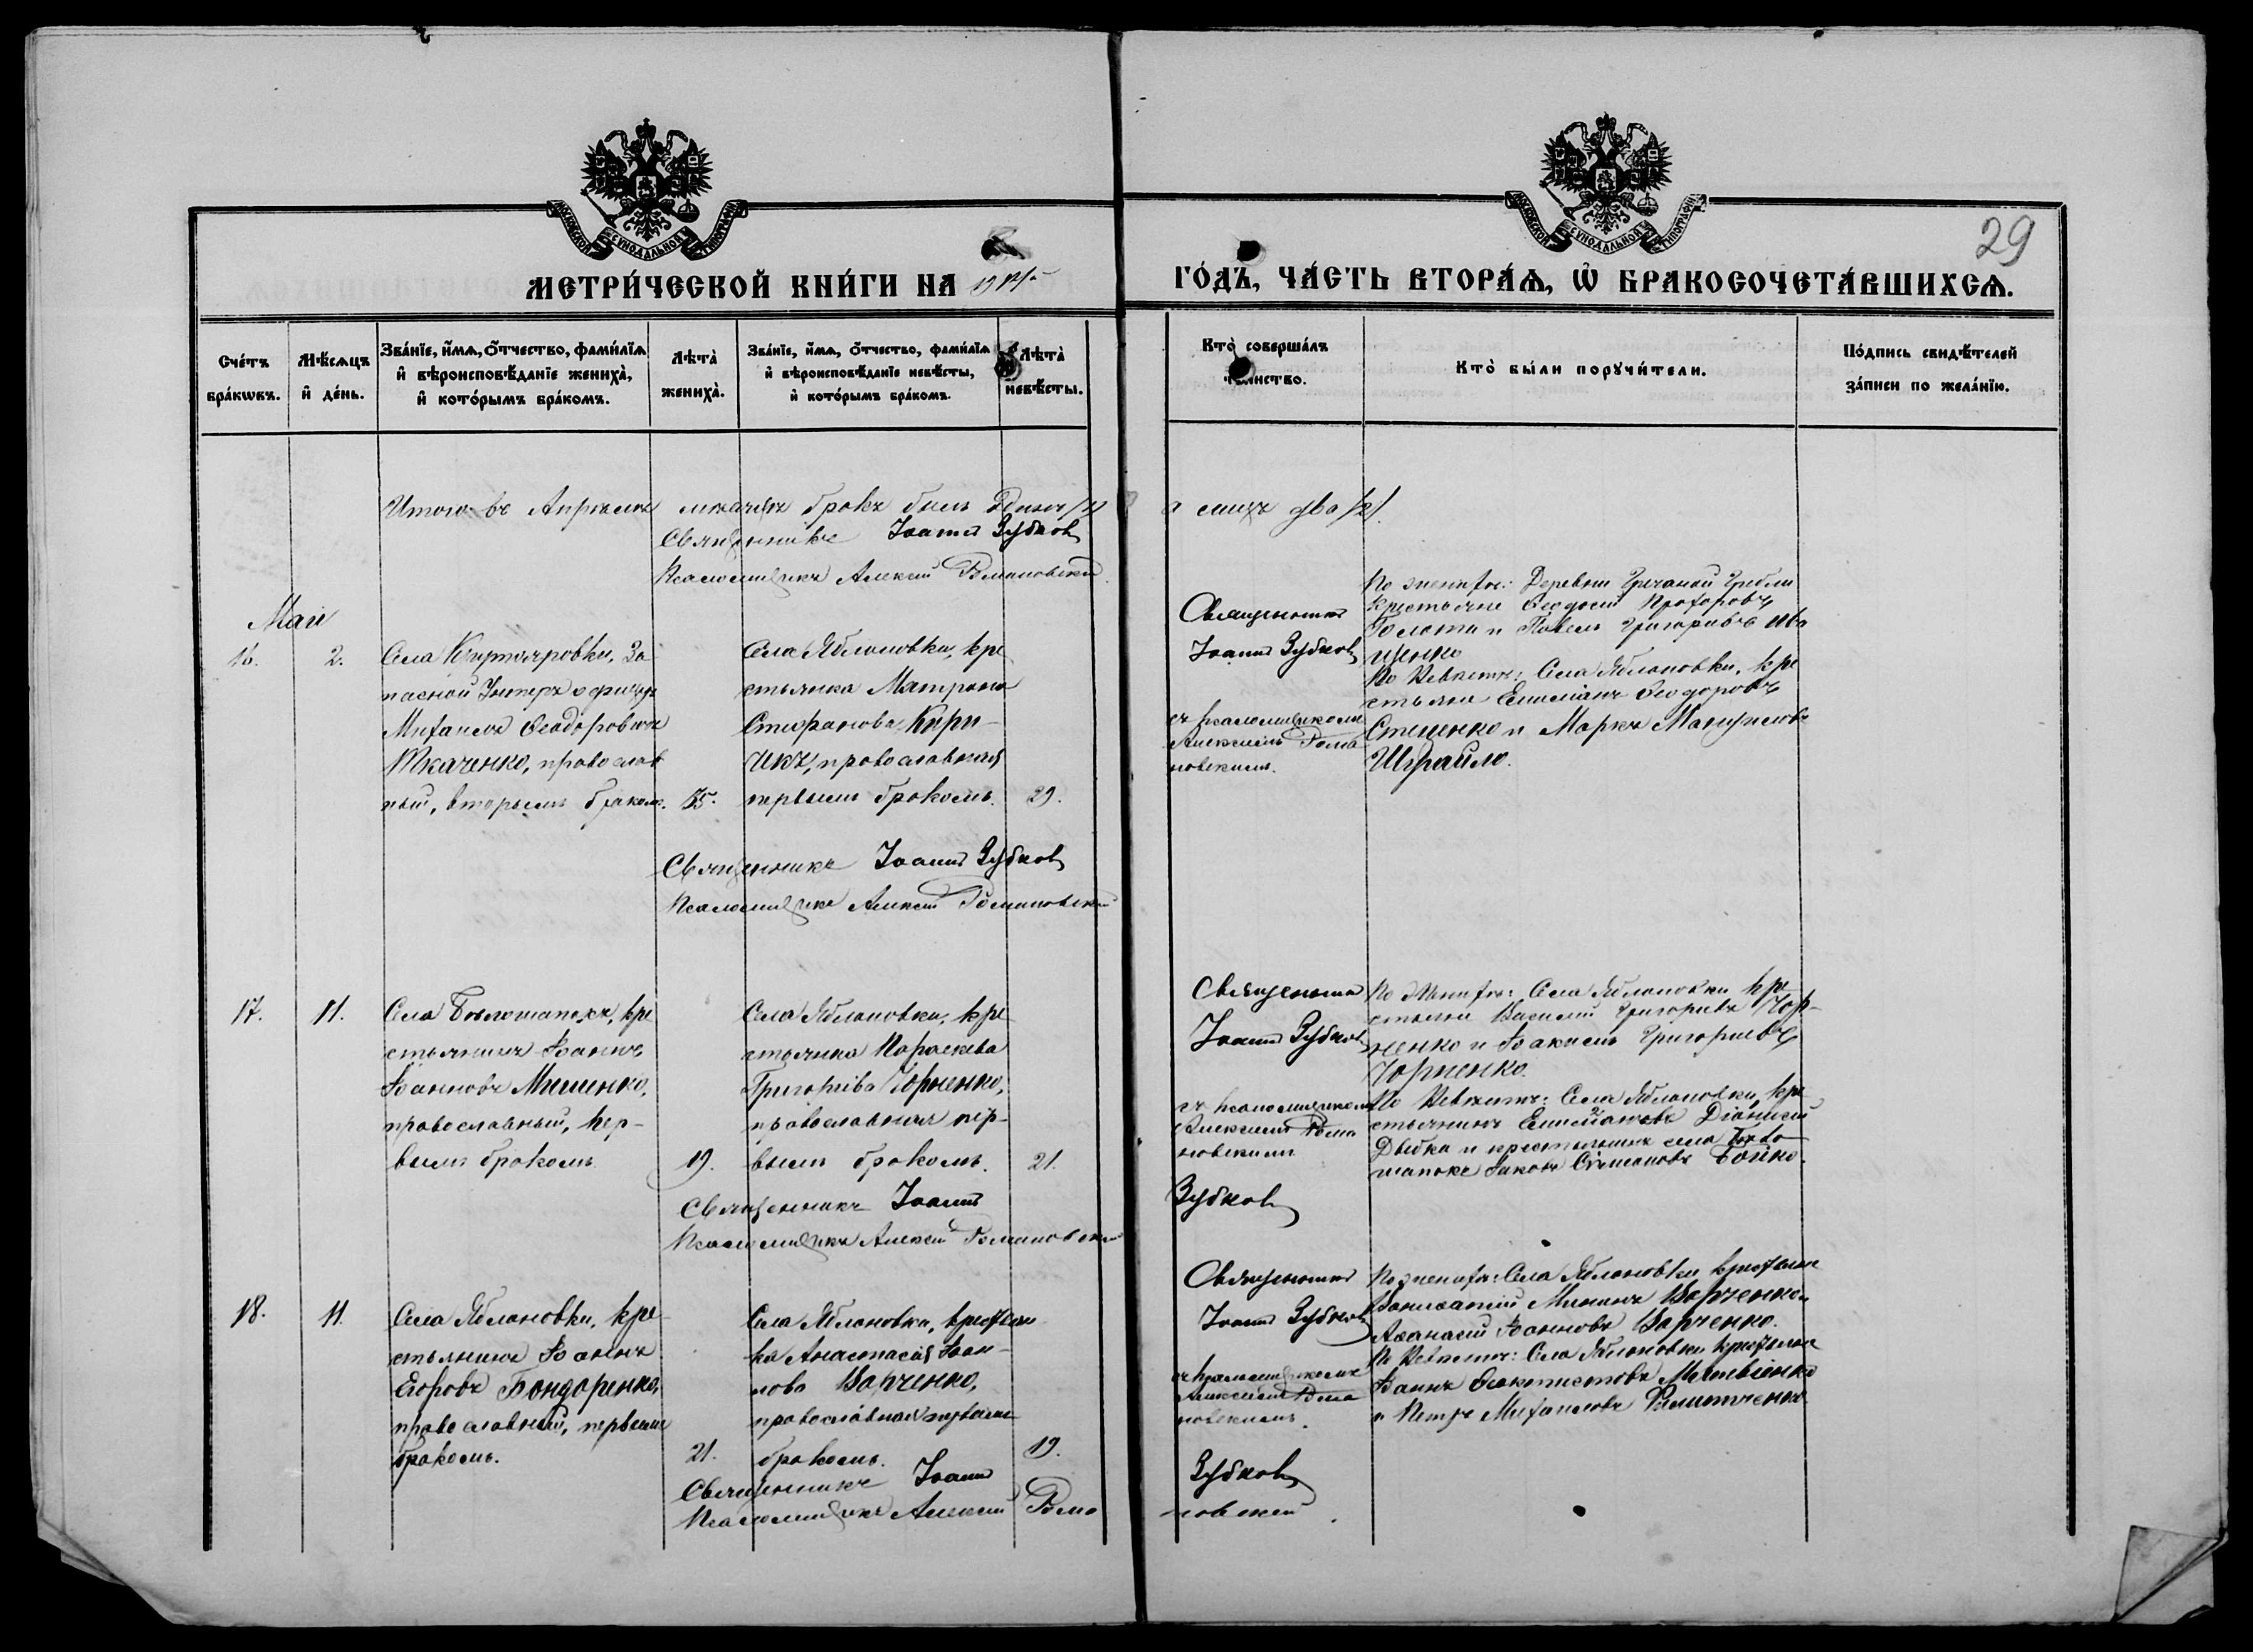 МОСКОВСКОЙ СУНОДАЛЬНОЙ ТИПОГРАФІИ
МЕТРИ́ЧЕСКОЙ КНИ́ГИ НА
МОСКОВСКОЙ СУНОДАЛЬНОЙ ТИПОГРАФІИ
29
ГО́ДЪ, ЧА́СТЬ ВТОРА́Ѧ, Ѽ БРАКОСОЧЕТА́ВШИХСѦ.
Сче́тъ бра́кѡвъ.
Мѣ́сѧцъ и҆ де́нь.
Зва́нїе, и҆́мѧ, ѻ҆́тчество, фами́лїѧ
и҆ вѣроисповѣ́данїе жениха̀,
и҆ кото́рымъ бра́комъ.
Лѣта̀ жениха̀.
Зва́нїе, и҆́мѧ, ѻ҆́тчество, фами́лїѧ
и҆ вѣроисповѣ́данїе невѣ́сты,
и҆ кото́рымъ бра́комъ.
Лѣта̀ невѣ́сты.
Кто̀ соверша́лъ таинство.
Кто̀ бы́ли порꙋчи́тели.
По́дпись свидѣ́телей
за́писи по жела́нїю.
Итого въ Апрѣлѣ мѣсяцѣ бракъ былъ
а лицъ два /2/.
Священникъ Іоаннъ Зубковъ
Псаломщикъ Алексій Романовскій
Май
16.
2.
Села
запасной Унтеръ офицеръ
Михаилъ Ѳеодоровичъ
Ткаченко, православ
ный, вторымъ бракомъ.
35.
Села Яблоновки, кре
стьянка Матрона
Стефанова Кири-
ченко, православная
первымъ бракомъ.
29.
Священникъ
Іоаннъ Зубковъ
съ псаломщикомъ
Алексіемъ Рома
новскимъ.
По женихѣ: Деревни Гречаной Гребли
крестьяне Ѳеодосій Прохоровъ
Голота и Павелъ Григорьевъ Ива
щенко
По Невѣстѣ: Села Яблоновки, кре
стьяне Емиліанъ Ѳеодоровъ
Стеценко и Маркъ
Шрайло.
Священникъ Іоаннъ Зубковъ
Псаломщикъ Алексій Романовскій
17.
11.
Села Бѣлошапокъ, кре
стьянинъ Іоаннъ
Іоанновъ Мишенко,
православный, пер-
вымъ бракомъ.
19.
Села Яблоновки, кре
стьянка Параскева
Григоріева Чорненко,
православная пер-
вымъ бракомъ.
21.
Священникъ
Іоаннъ Зубковъ
съ псаломщикомъ
Алексіемъ Рома
новскимъ
По Женихѣ: Села Яблоновки кре
стьяне Василій Григорьевъ Чор-
ненко и Іоакимъ Григорьевъ
Чорненко.
По Невѣстѣ: Села Яблоновки, кре
стьянинъ Діонисій
и крестьянинъ села Бѣло
шапокъ Іаковъ Стефановъ Бойко.
Священникъ Іоаннъ Зубковъ
Псаломщикъ Алексій Романовскій
18.
11.
Села Яблоновки, кре
стьянинъ Іоаннъ
Егоровъ Бондаренко,
православный, первымъ
бракомъ.
21.
Села Яблоновки, крестьян
ка Анастасія Іоан-
нова Варченко,
православная первымъ
бракомъ.
19.
Священникъ
Іоаннъ Зубковъ
съ псаломщикомъ
Алексіемъ Рома
новскимъ.
По женихѣ: Села Яблоновки крестьяне
Варченко и
Аѳанасій Іоанновъ Варченко.
По Невѣстѣ: Села Яблоновки крестьяне
Іоаннъ Ѳеоктистовъ Матвіенко
и Петръ Михаиловъ Филипченко
Священникъ Іоаннъ Зубковъ
Псаломщикъ Алексій Романовскій.